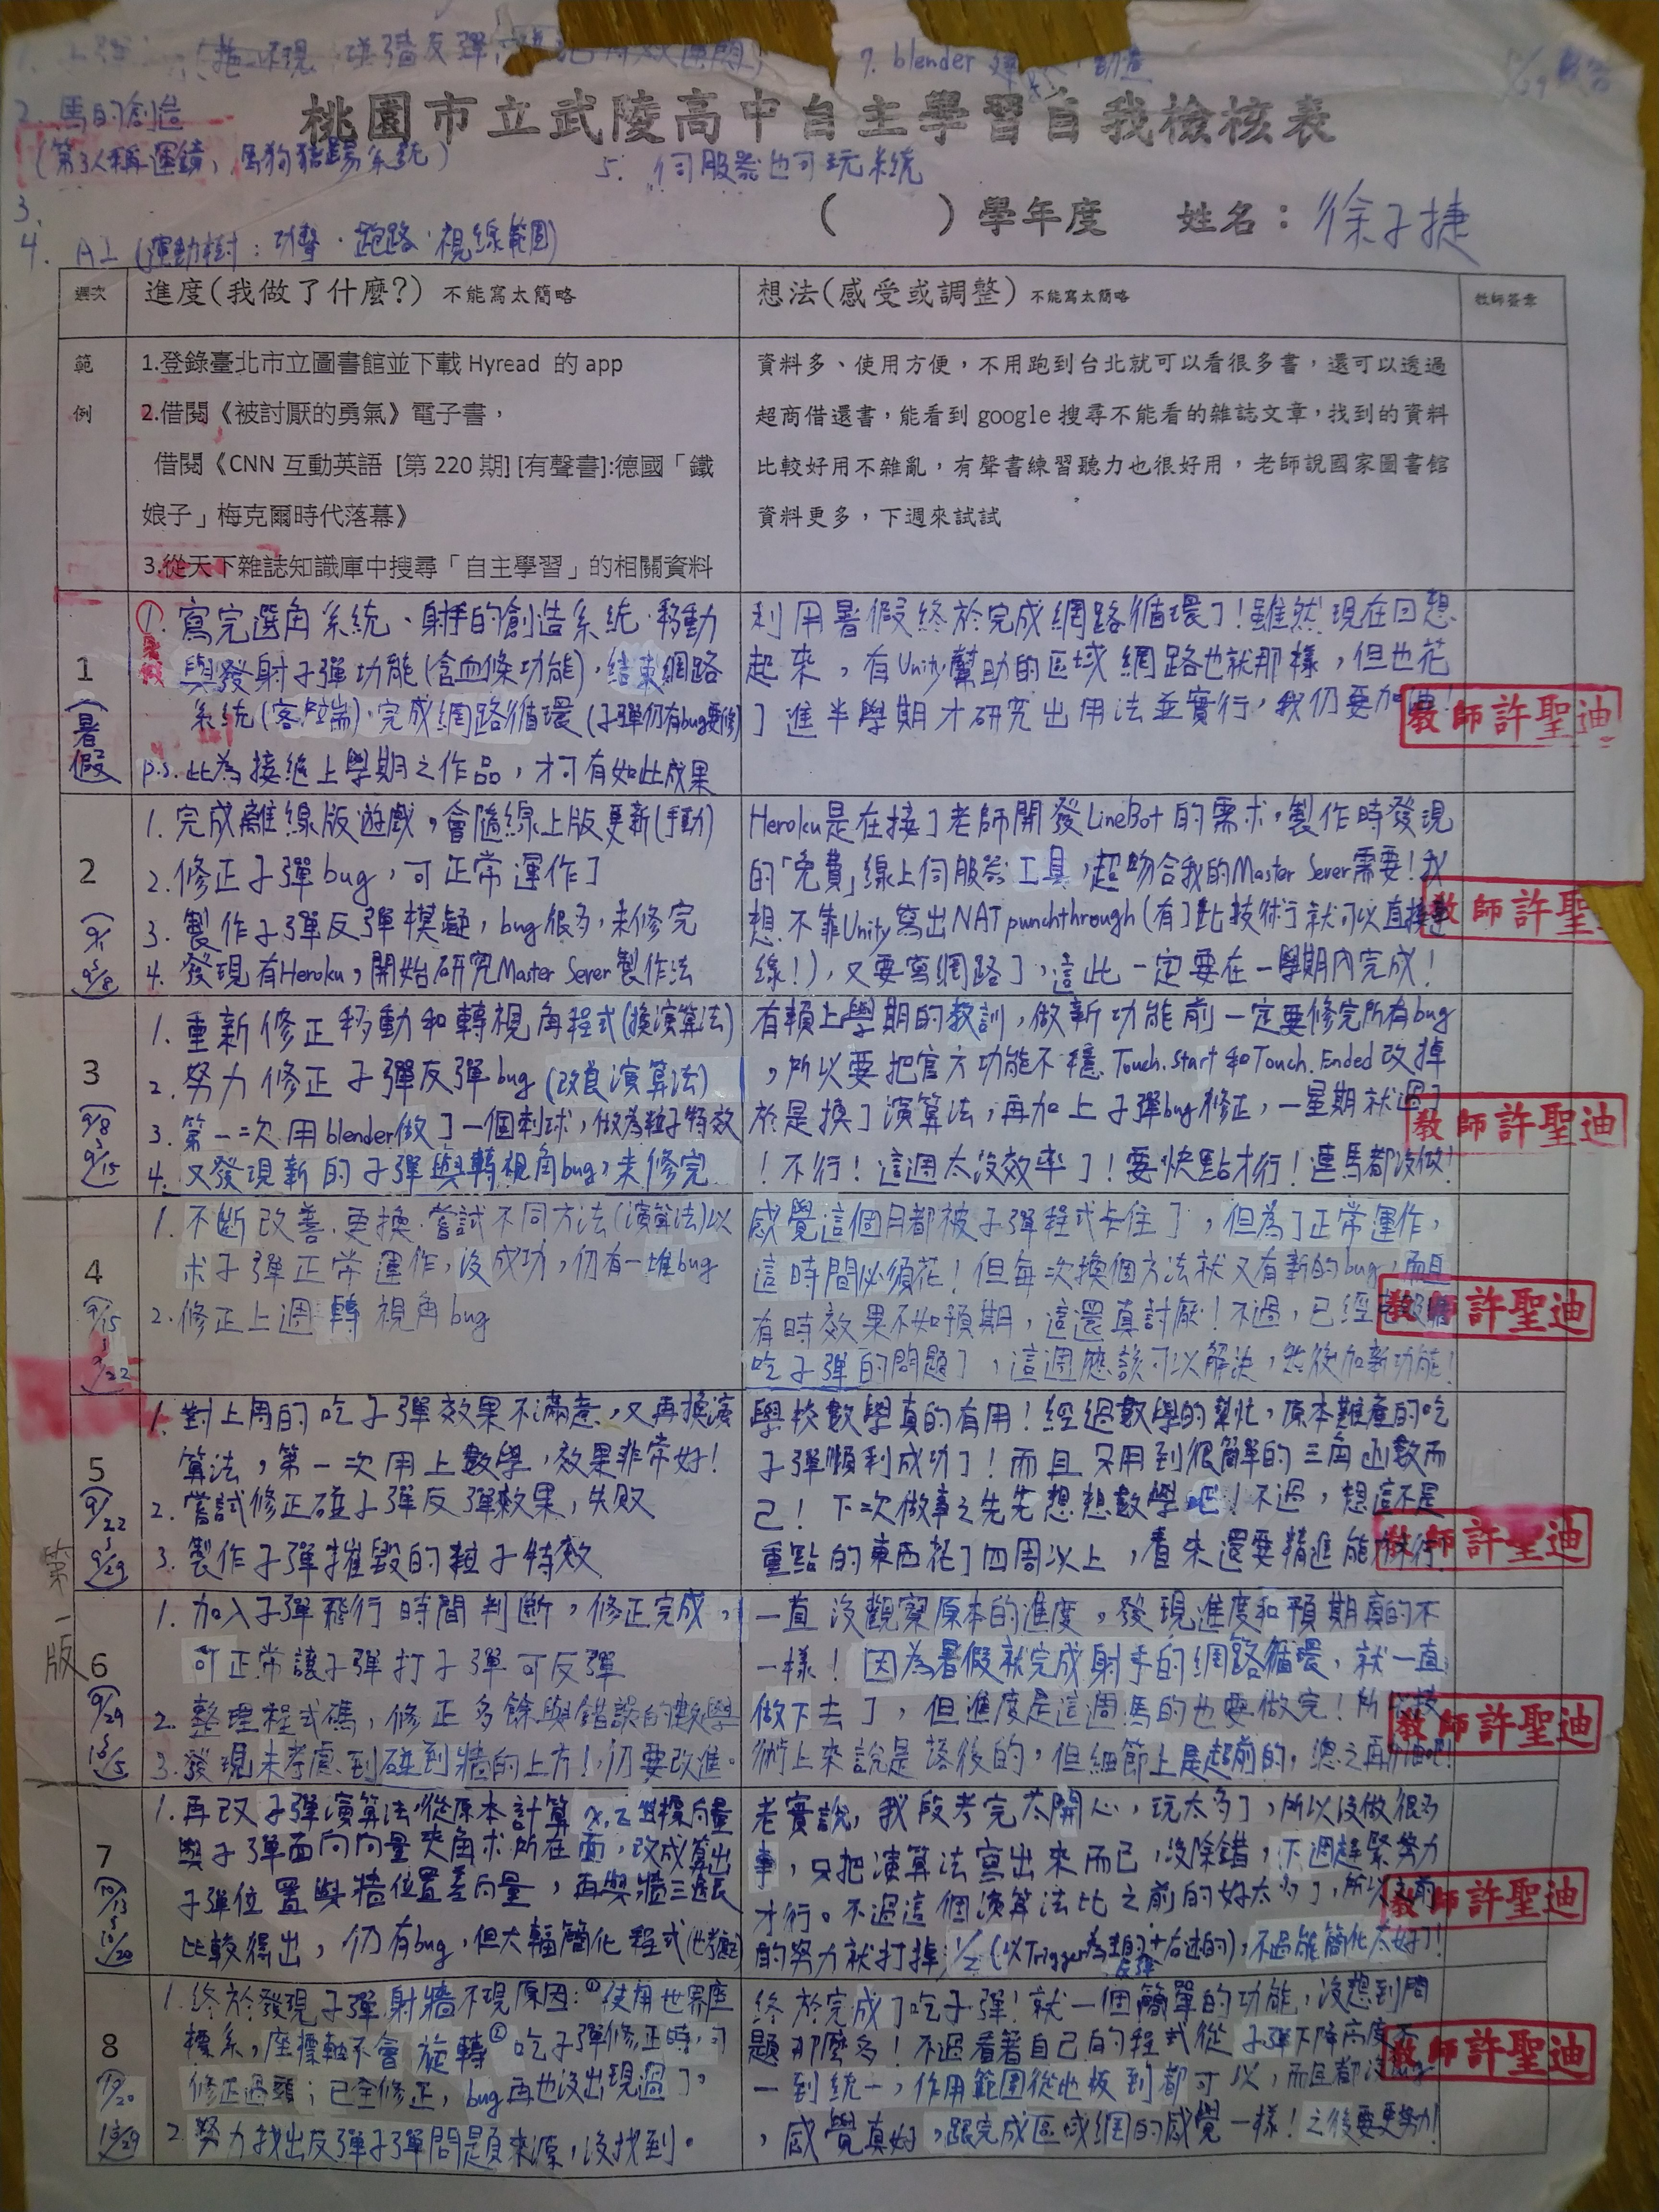 碰牆反彈
7. blender
2. 馬的創造
桃園市立武陵高中自主學習自我檢核表
(第3人稱運鏡,馬狗豬賜系統)
5. 伺服器也可玩系統
3.
( ) 學年度 姓名:徐子捷
4. AI (運動樹:功擊.跑路.視線範圍)
週次 進度(我做了什麼?) 不能寫太簡略 想法(感受或調整) 不能寫太簡略 教師簽章
範例
1.登錄臺北市立圖書館並下載 Hyread 的 app
2.借閱《被討厭的勇氣》電子書,
借閱《CNN 互動英語 [第 220 期] [有聲書]:德國「鐵
娘子」梅克爾時代落幕》
3.從天下雜誌知識庫中搜尋「自主學習」的相關資料
資料多、使用方便,不用跑到台北就可以看很多書,還可以透過
超商借還書,能看到 google 搜尋不能看的雜誌文章,找到的資料
比較好用不雜亂,有聲書練習聽力也很好用,老師說國家圖書館
資料更多,下週來試試
1
(暑假)
1. 寫完選角系統、射手的創造系統.移動
暑假
與發射子彈功能(含血條功能),結束網路
系統(客戶端).完成網路循環(子彈仍有bug要修)
p.s. 此為接繼上學期之作品,才可有如此成果
利用暑假終於完成網路循環了!雖然現在回想
起來,有Unity幫助的區域網路也就那樣,但也花
了進半學期才研究出用法並實行,我仍要加
教師許聖迪
2
(9/1~9/8)
1. 完成離線版遊戲,會隨線上版更新(手動)
2. 修正子彈bug,可正常運作了
3. 製作子彈反彈模疑,bug很多,未修完
4. 發現有Heroku,開始研究Master Sever製作法
Heroku是在接了老師開發LineBot的需求,製作時發現
的「免費」線上伺服器工具,超吻合我的Master Sever需要!我
想不靠Unity寫出NAT punchthrough(有了此技術就可以直接連
線!),又要寫網路了,這此一定要在一學期內完成!
教師許聖
3
(9/8~9/15)
1. 重新修正移動和轉視角程式(換演算法)
2. 努力修正子彈反彈bug(改良演算法)
3. 第一次用blender做了一個刺球,做為粒子特效
4. 又發現新的子彈與轉視角bug,未修完
有賴上學期的教訓,做新功能前一定要修完所有bug
,所以要把官方功能不穩.Touch.Start和Touch.Ended改掉
於是換了演算法,再加上子彈bug修正,一星期就過了
!不行!這週太沒效率了!要快點才行!連馬都沒做!
教師許聖迪
4
(9/15~9/22)
1. 不斷改善.更換.嘗試不同方法(演算法)以
求子彈正常運作,沒成功,仍有一堆bug
2. 修正上週轉視角bug
感覺這個月都被子彈程式卡住了,但為了正常運作,
這時間必須花!但每次換個方法就又有新的bug,而且
有時效果不如預期,這還真討厭!不過,已經
吃子彈的問題了,這週應該可以解決,然後加新功能!
教師許聖迪
5
(9/22~9/29)
1. 對上周的吃子彈效果不滿意,又再換演
算法,第一次用上數學,效果非常好!
2. 嘗試修正碰子彈反彈效果,失敗
3. 製作子彈摧毀的粒子特效
學校數學真的有用!經過數學的幫忙,原本難產的吃
子彈順利成功了!而且只用到很簡單的三角函數而
已!下次做事之先先想想數學吧!不過,想這不是
重點的東西花了四周以上,看來還要精進能力才行
教師許聖迪
第一版
6
(9/29~10/5)
1. 加入子彈飛行時間判斷,修正完成,
可正常讓子彈打子彈可反彈
2. 整理程式碼,修正多餘與錯誤的數學
3. 發現未考慮到碰到牆的上方!,仍要改進。
一直沒觀察原本的進度,發現進度和預期真的不
一樣!因為暑假就完成射手的網路循環,就一直
做下去了,但進度是這週馬的也要做完!所以技
術上來說是落後的,但細節上是超前的,總之再加油吧!
教師許聖迪
7
(10/13~10/20)
1. 再改子彈演算法,從原本計算x,z坐標向量
與子彈面向向量夾角求所在面,改成算出
子彈位置與牆位置差向量,再與牆三邊長
比較得出,仍有bug,但大幅簡化程式
老實說,我段考完太開心,玩太多了,所以沒做很多
事,只把演算法寫出來而已,沒除錯,下週趕緊努力
才行。不過這個演算法比之前的好太多了,所以之前
的努力就打掉1/2(以Trigger為主的反彈+右述的),不過能簡化太好了!
教師許聖迪
8
(10/20~10/29)
1. 終於發現子彈射牆不現原因:①使用世界座
標系,座標軸不會旋轉②吃子彈修正時,可
修正過頭;已全修正,bug再也沒出現過了。
2. 努力找出反彈子彈問題來源,沒找到。
終於完成了吃子彈!就一個簡單的功能,沒想到問
題那麼多!不過看著自己的程式從子彈下降高度不
一到統一,作用範圍從地板到都可以,而且都沒
,感覺真好,跟完成區域網的感覺一樣!之後要更努力!
教師許聖迪